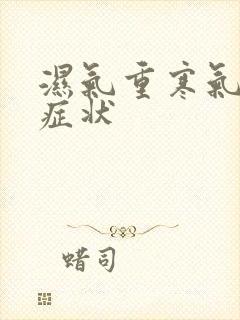 濕氣重寒氣
症状
蜡司